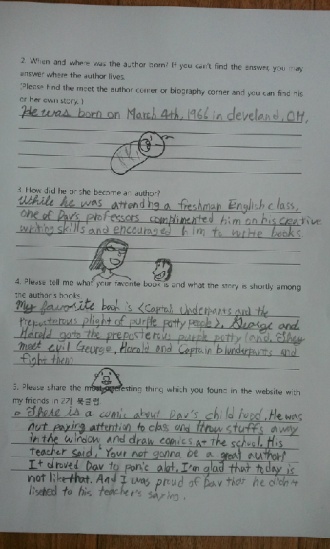 2. When and where was the author born? If you can't find the answer, you may
answer where the author lives.
(Please find the meet the author corner or biography corner and you can find his
or her own story.)
He was born on March 4th, 1966 in cleveland, OH.
3. How did he or she become an author?
While he was attending a freshman English class,
one of Dav's professors complimented him on his creative
writing skills and encouraged him to write books.
4. Please tell me what your favorite book is and what the story is shortly among
the author's books.
My favorite book is <Captain Underpants and the
Preposterous plight of purple potty people>. George and
Harold goto the preposterous purple potty land. They
meet evil George, Harold and Captain blunderpants and
fight them
5. Please share the most interesting thing which you found in the website with
my friends in 2기 북클럽
There is a comic about Dav's child hood. He was
not paying attention to class and throw stuffs away
in the window and draw comics at the school. His
teacher said. Your not gonna be a great author!
It droved Dav to panic alot. I'm glad that today is
not like that. And I was proud of Dav that he didn't
listed to his teacher's saying.